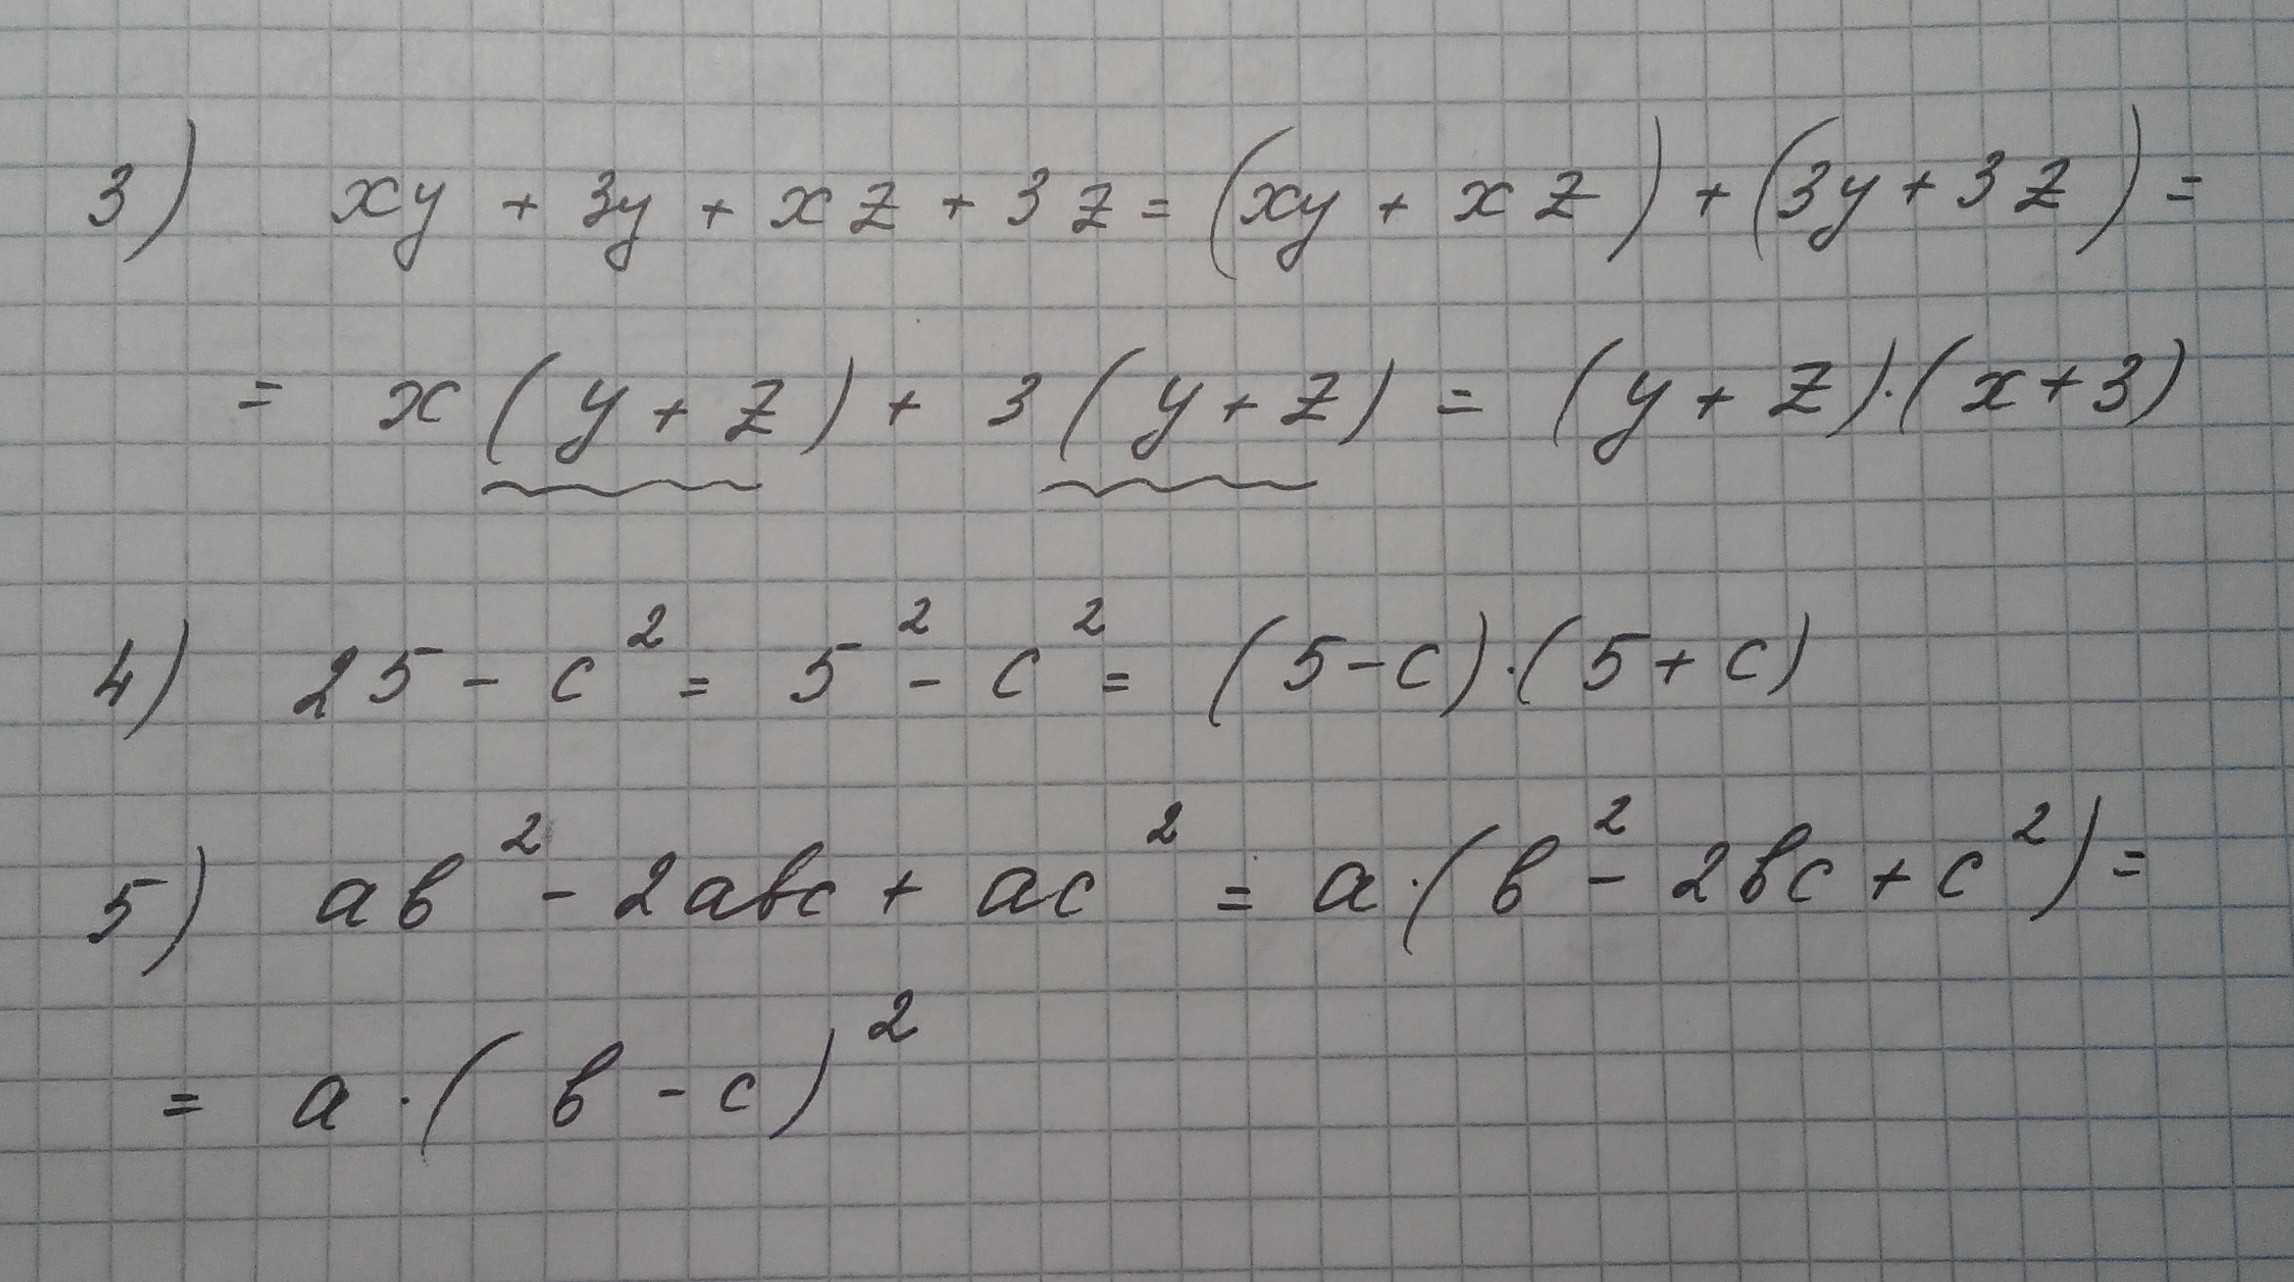 3) xy + 3y + xz + 3z = (xy + xz) + (3y + 3z) =
= x(y + z) + 3(y + z) = (y + z)·(x + 3)
4) 25 - c² = 5² - c² = (5 - c)·(5 + c)
5) ab² - 2abc + ac² = a·(b² - 2bc + c²) =
= a·(b - c)²